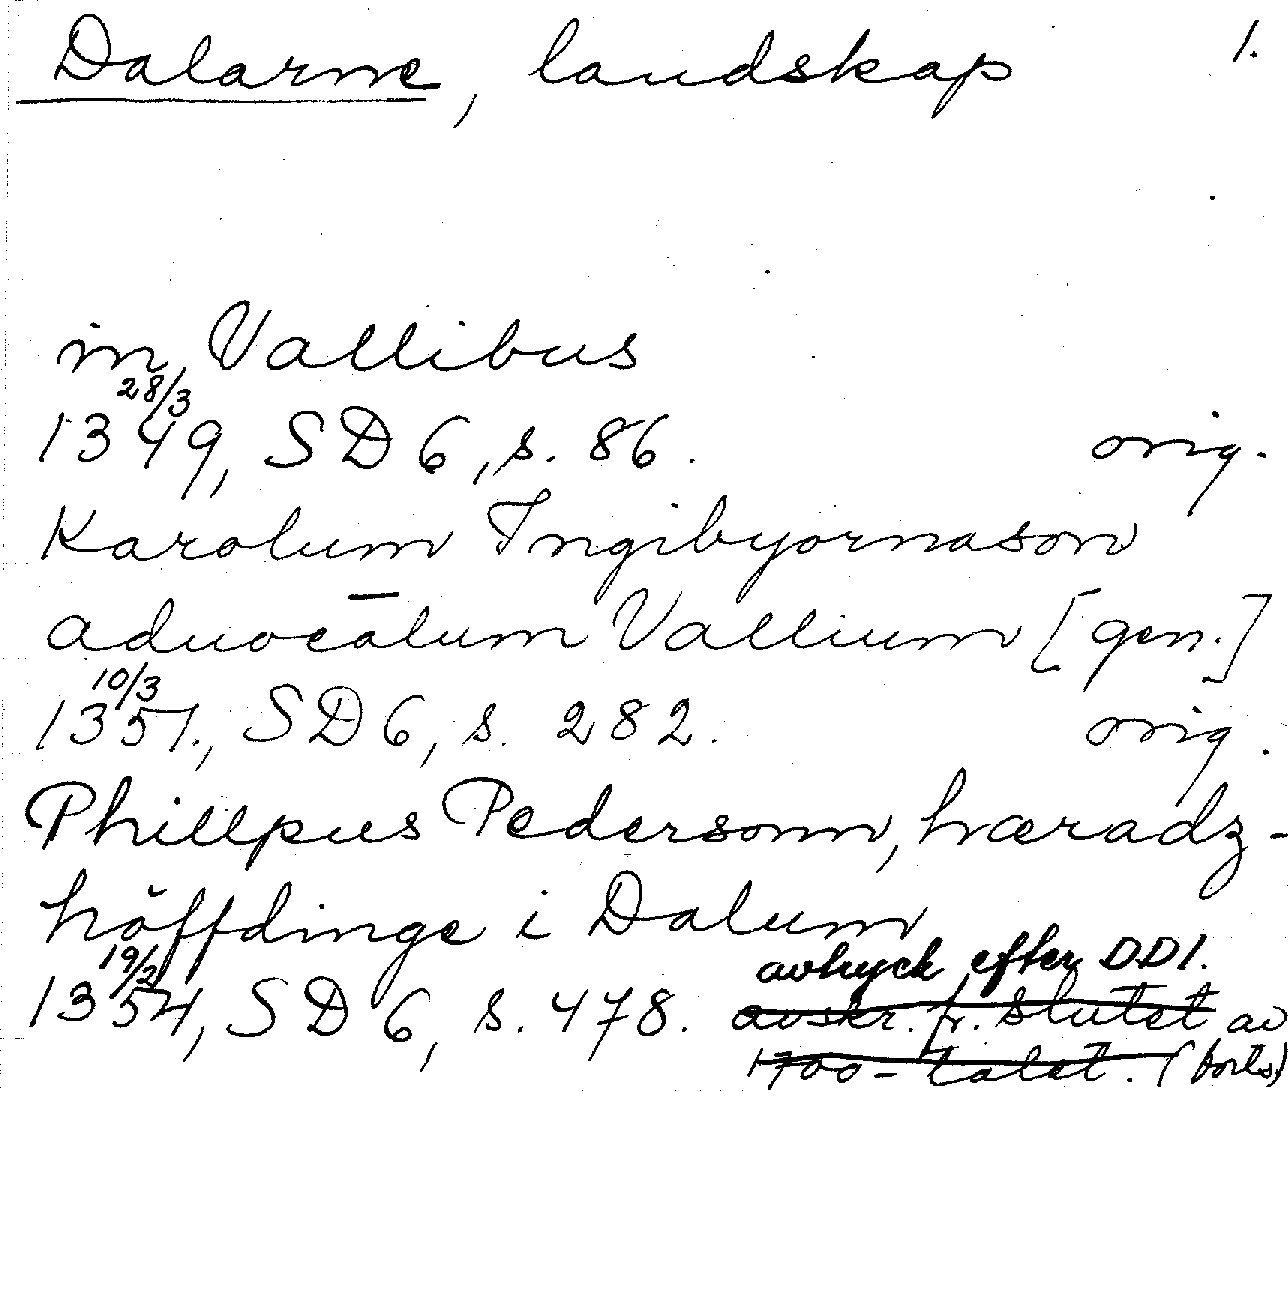 Dalarne, landskap 1.
in Vallibus
28/3
1349, SD 6, s. 86. orig.
Karolum Ingibyornason
aduocatum Vallium [gen.]
10/3
1351, SD 6, s. 282. orig.
Phillpus Pedersonn, hæradz-
höffdinge i Dalum
19/2 avtryck efter DD1.
1354, SD 6, s. 478. avskr. fr. slutet av
1700-talet. (forts)